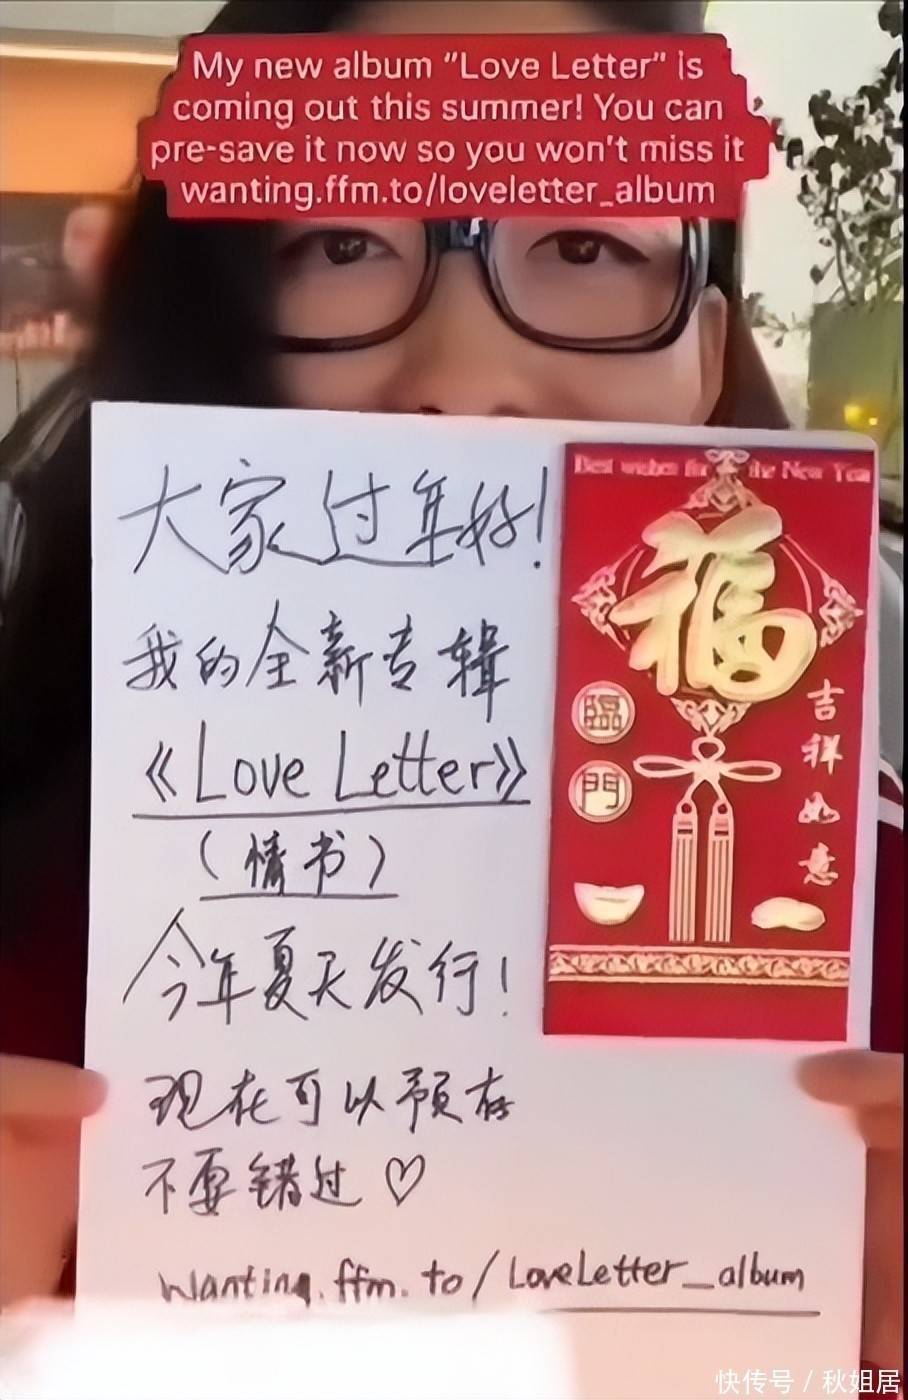 My new album “Love Letter” is
coming out this summer! You can
pre-save it now so you won’t miss it
wanting.ffm.to/loveletter_album
大家过年好！
我的全新专辑
《Love Letter》
（情书）
今年夏天发行！
现在可以预存
不要错过♡
Wanting.ffm.to/LoveLetter_album
Best wishes for the New Year
福
臨
門
吉祥如意
快传号/秋姐居